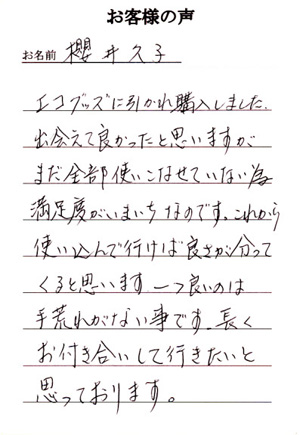 お客様の声
お名前 櫻井久子
エコグッズに引かれ購入しました.
出会えて良かったと思いますが
まだ全部使いこなせていない為
満足度がいまいちなのです。これから
使い込んで行けば良さが分って
くると思います 一つ良いのは
手荒れがない事です. 長く
お付き合いして行きたいと
思っております。